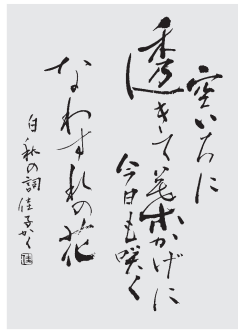 空いろに
透きて葉かげに
今日も咲く
なわすれの花
白秋の詞 佳子かく